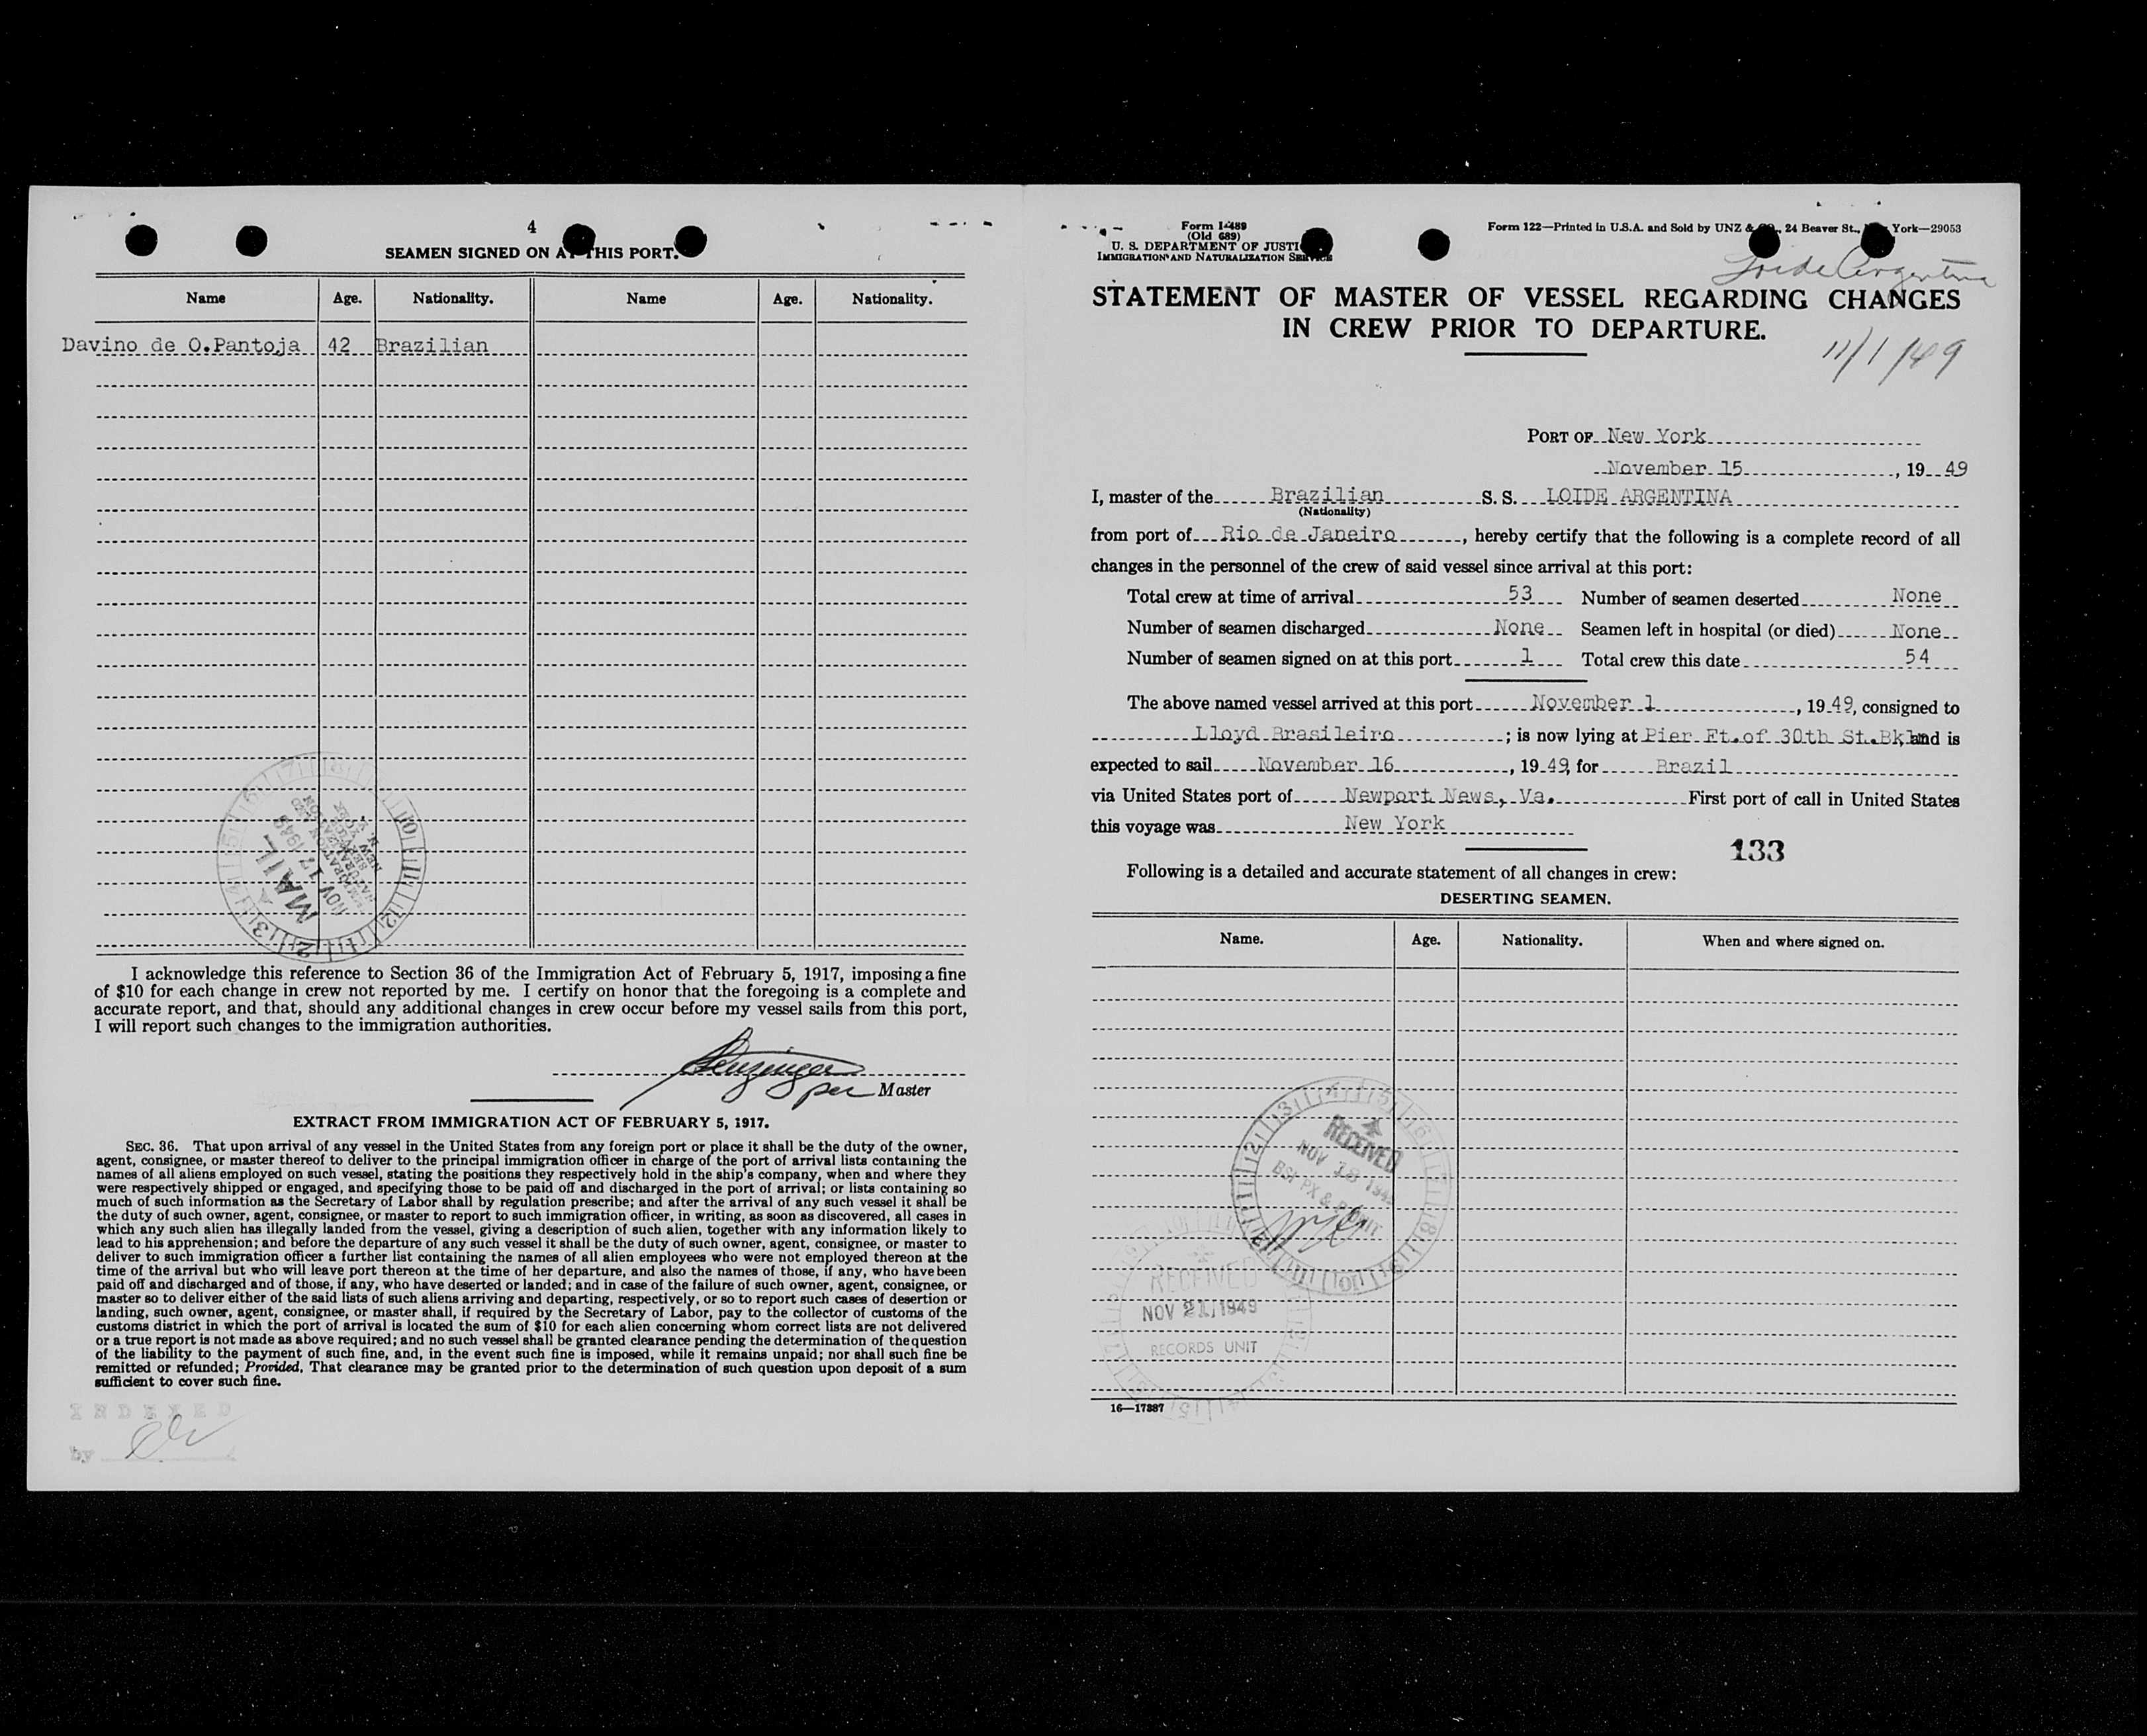 4
SEAMEN SIGNED ON AT THIS PORT.
Name Age. Nationality. Name Age. Nationality.
Davino de O.Pantoja 42 Brazilian
MAIL
NOV 17 1949
IMMIGRATION AND
NATURALIZATION
SERVICE
NEW YORK
I acknowledge this reference to Section 36 of the Immigration Act of February 5, 1917, imposing a fine
of $10 for each change in crew not reported by me. I certify on honor that the foregoing is a complete and
accurate report, and that, should any additional changes in crew occur before my vessel sails from this port,
I will report such changes to the immigration authorities.
per Master
EXTRACT FROM IMMIGRATION ACT OF FEBRUARY 5, 1917.
SEC. 36. That upon arrival of any vessel in the United States from any foreign port or place it shall be the duty of the owner,
agent, consignee, or master thereof to deliver to the principal immigration officer in charge of the port of arrival lists containing the
names of all aliens employed on such vessel, stating the positions they respectively hold in the ship's company, when and where they
were respectively shipped or engaged, and specifying those to be paid off and discharged in the port of arrival; or lists containing so
much of such information as the Secretary of Labor shall by regulation prescribe; and after the arrival of any such vessel it shall be
the duty of such owner, agent, consignee, or master to report to such immigration officer, in writing, as soon as discovered, all cases in
which any such alien has illegally landed from the vessel, giving a description of such alien, together with any information likely to
lead to his apprehension; and before the departure of any such vessel it shall be the duty of such owner, agent, consignee, or master to
deliver to such immigration officer a further list containing the names of all alien employees who were not employed thereon at the
time of the arrival but who will leave port thereon at the time of her departure, and also the names of those, if any, who have been
paid off and discharged and of those, if any, who have deserted or landed; and in case of the failure of such owner, agent, consignee, or
master so to deliver either of the said lists of such aliens arriving and departing, respectively, or so to report such cases of desertion or
landing, such owner, agent, consignee, or master shall, if required by the Secretary of Labor, pay to the collector of customs of the
customs district in which the port of arrival is located the sum of $10 for each alien concerning whom correct lists are not delivered
or a true report is not made as above required; and no such vessel shall be granted clearance pending the determination of the question
of the liability to the payment of such fine, and, in the event such fine is imposed, while it remains unpaid; nor shall such fine be
remitted or refunded; Provided, That clearance may be granted prior to the determination of such question upon deposit of a sum
sufficient to cover such fine.
INDEXED
by
Form I-489
(Old 689)
U. S. DEPARTMENT OF JUSTICE
IMMIGRATION AND NATURALIZATION SERVICE
Form 122—Printed in U.S.A. and Sold by UNZ & CO., 24 Beaver St., New York—29053
Loide Argentina
STATEMENT OF MASTER OF VESSEL REGARDING CHANGES
IN CREW PRIOR TO DEPARTURE.
11/1/49
PORT OF New York
November 15, 19 49
I, master of the Brazilian S. S. LOIDE ARGENTINA
(Nationality)
from port of Rio de Janeiro, hereby certify that the following is a complete record of all
changes in the personnel of the crew of said vessel since arrival at this port:
Total crew at time of arrival 53 Number of seamen deserted None
Number of seamen discharged None Seamen left in hospital (or died) None
Number of seamen signed on at this port 1 Total crew this date 54
The above named vessel arrived at this port November 1, 19 49, consigned to
Lloyd Brasileiro; is now lying at Pier Ft.of 30th St.Bkln and is
expected to sail November 16, 19 49, for Brazil
via United States port of Newport News, Va. First port of call in United States
this voyage was New York
133
Following is a detailed and accurate statement of all changes in crew:
DESERTING SEAMEN.
Name. Age. Nationality. When and where signed on.
RECEIVED
NOV 18 1949
BSI PX & PERMIT
RECEIVED
NOV 21 1949
RECORDS UNIT
16—17887